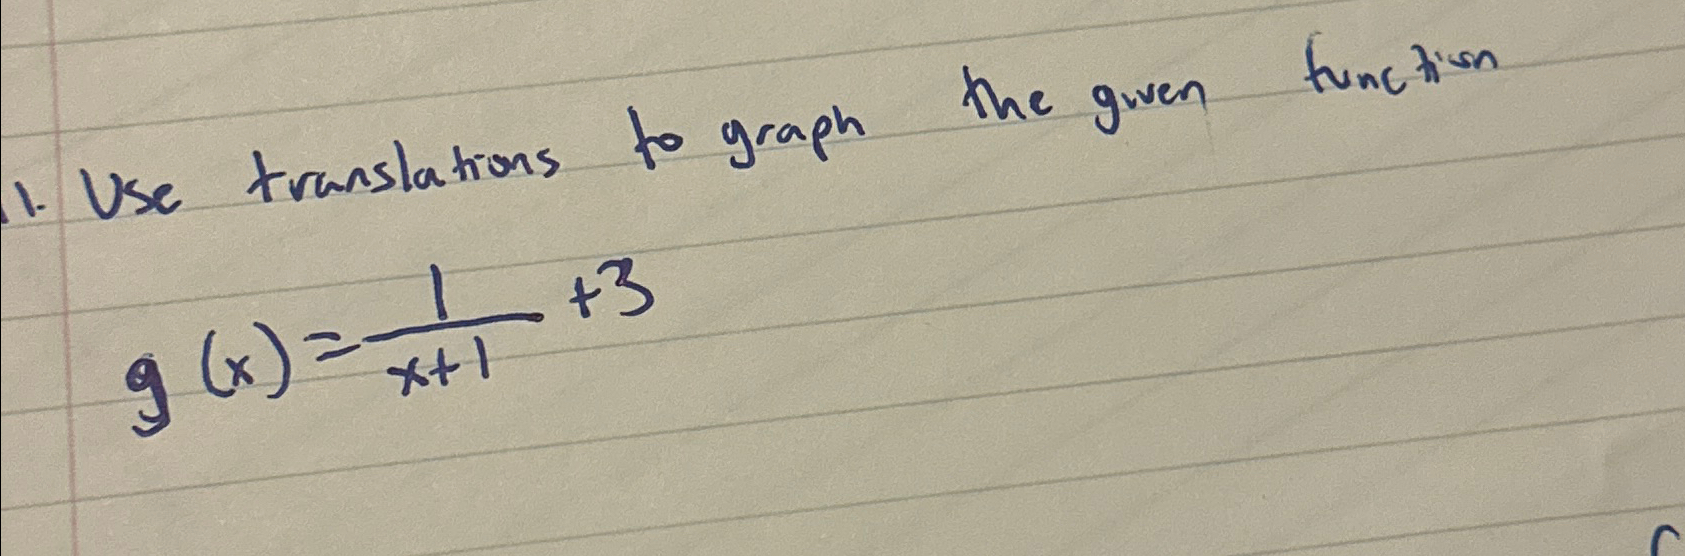 11. Use translations to graph the given function
g(x) = 1/(x+1) + 3